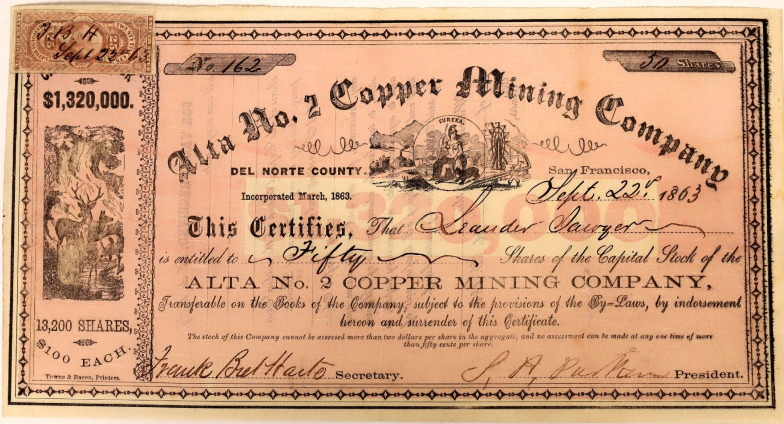 J. B. H
Sept 22d 63
25
$1,320,000.
13,200 SHARES,
$100 EACH.
Towne & Bacon, Printers.
No. 162
50 Shares
Alta No. 2 Copper Mining Company
EUREKA.
DEL NORTE COUNTY.
San Francisco,
Incorporated March, 1863.
Sept. 22d 1863
This Certifies, That Leander Sawyer
is entitled to Fifty Shares of the Capital Stock of the
ALTA No. 2 COPPER MINING COMPANY,
Transferable on the Books of the Company, subject to the provisions of the By-Laws, by indorsement
hereon and surrender of this Certificate.
The stock of this Company cannot be assessed more than two dollars per share in the aggregate, and no assessment can be made at any one time of more
than fifty cents per share.
Frank Bret Harte Secretary.
S. H. Parker President.